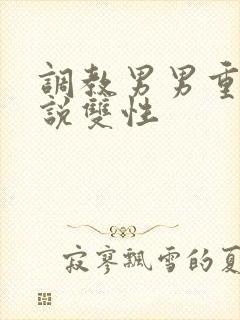 調教男男重
說雙性
寂寥飄雪的夏